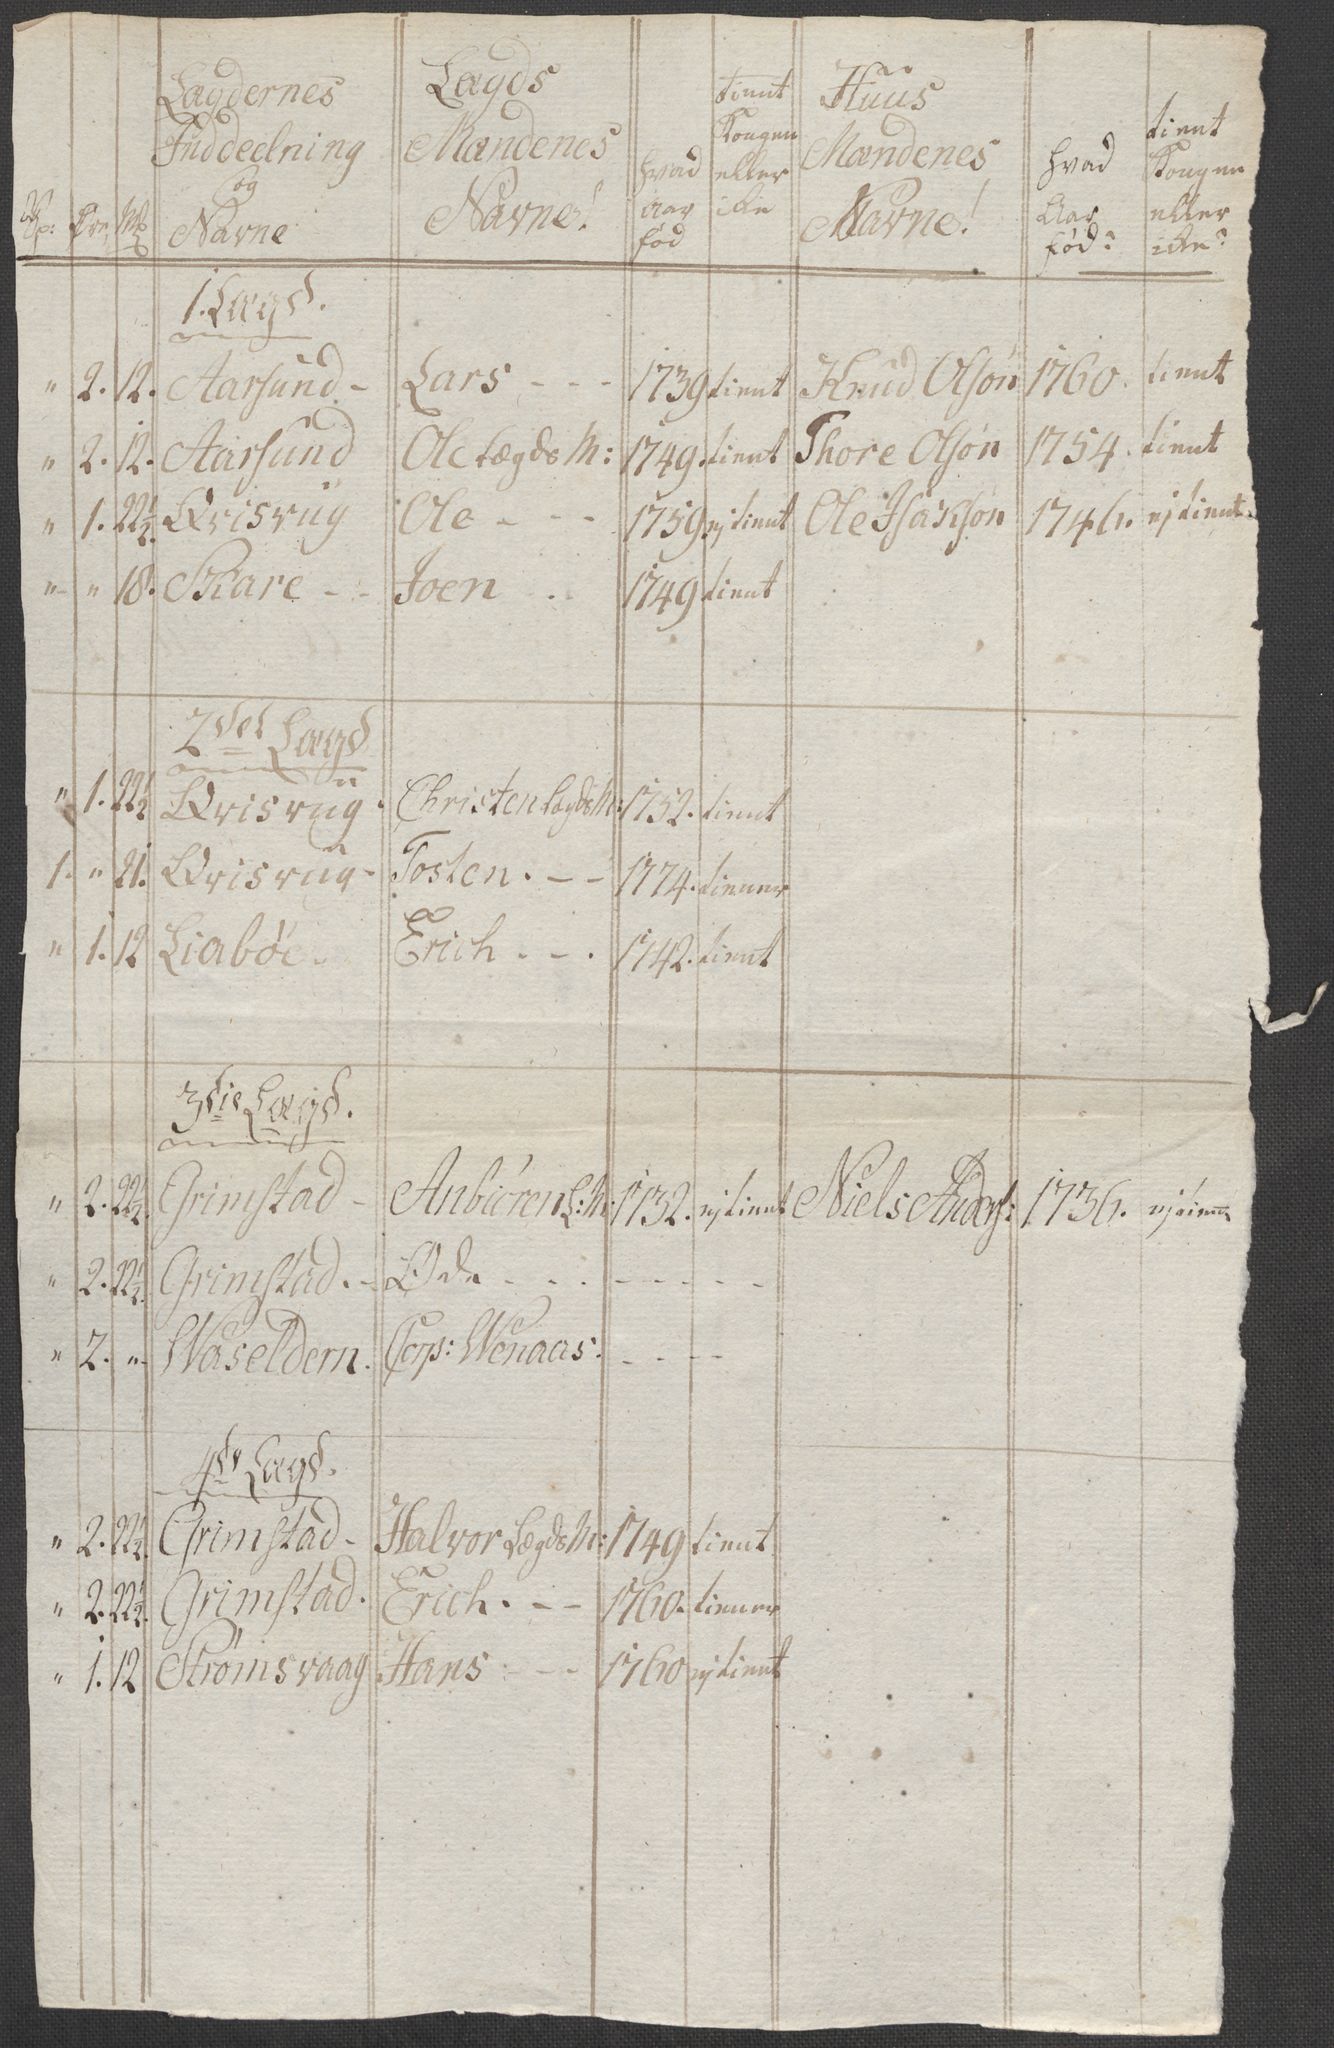 Vp: Øre, Mk | Lægdernes Inddeelning og Navne | Lægds Mændenes Navne! | hvad aar fød | tient Kongen eller icke | Huus Mændenes Navne! | hvad Aar fød? | tient Kongen eller icke?
1. Lægd.
" 2. 12. Aarsund - Lars - - - 1739 tient Knud Olsøn 1760. tient
" 2. 12. Aarsund Ole Lægds M: 1749. tient Thore Olsøn 1754. tient
" 1. 22½. Qvisvug Ole - - - 1759 ej tient Ole Isaksøn 1746. ej tient
" " 18. Skare - - Joen - - 1749 tient
2det Lægd
" 1. 22½ Qvisvug. Christen Lægds M: 1752. tient
1. " 21. Qvisvug - Tosten. - - 1774. tiener
" 1. 12 Liabøe. Erich . - . 1742. tient
3die Lægd.
" 2. 22½. Grimstad - Anbiøren L: M: 1732. ej tient Niels Anders: 1736. ej tient
" 2. 22½. Grimstad. - Øde - - - - - - - -
" 2. " Waseldern. Corp: Wenaas: - - - -
4de Lægd.
" 2. 22½. Grimstad - Halvor Lægds M: 1749 tient
" 2. 22½. Grimstad. Erich. - - 1760. tiener
" 1. 12 Strømsvaag Hans - - - 1760 ej tient